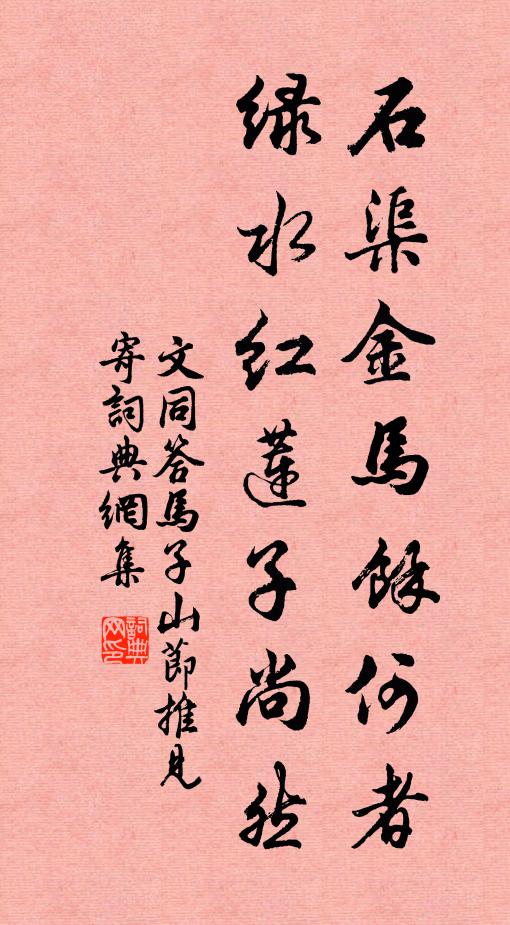 石渠金馬餘何者
綠水红蓮子尚然
文同答馬子山節推見
寄詞典網集
詞典网印